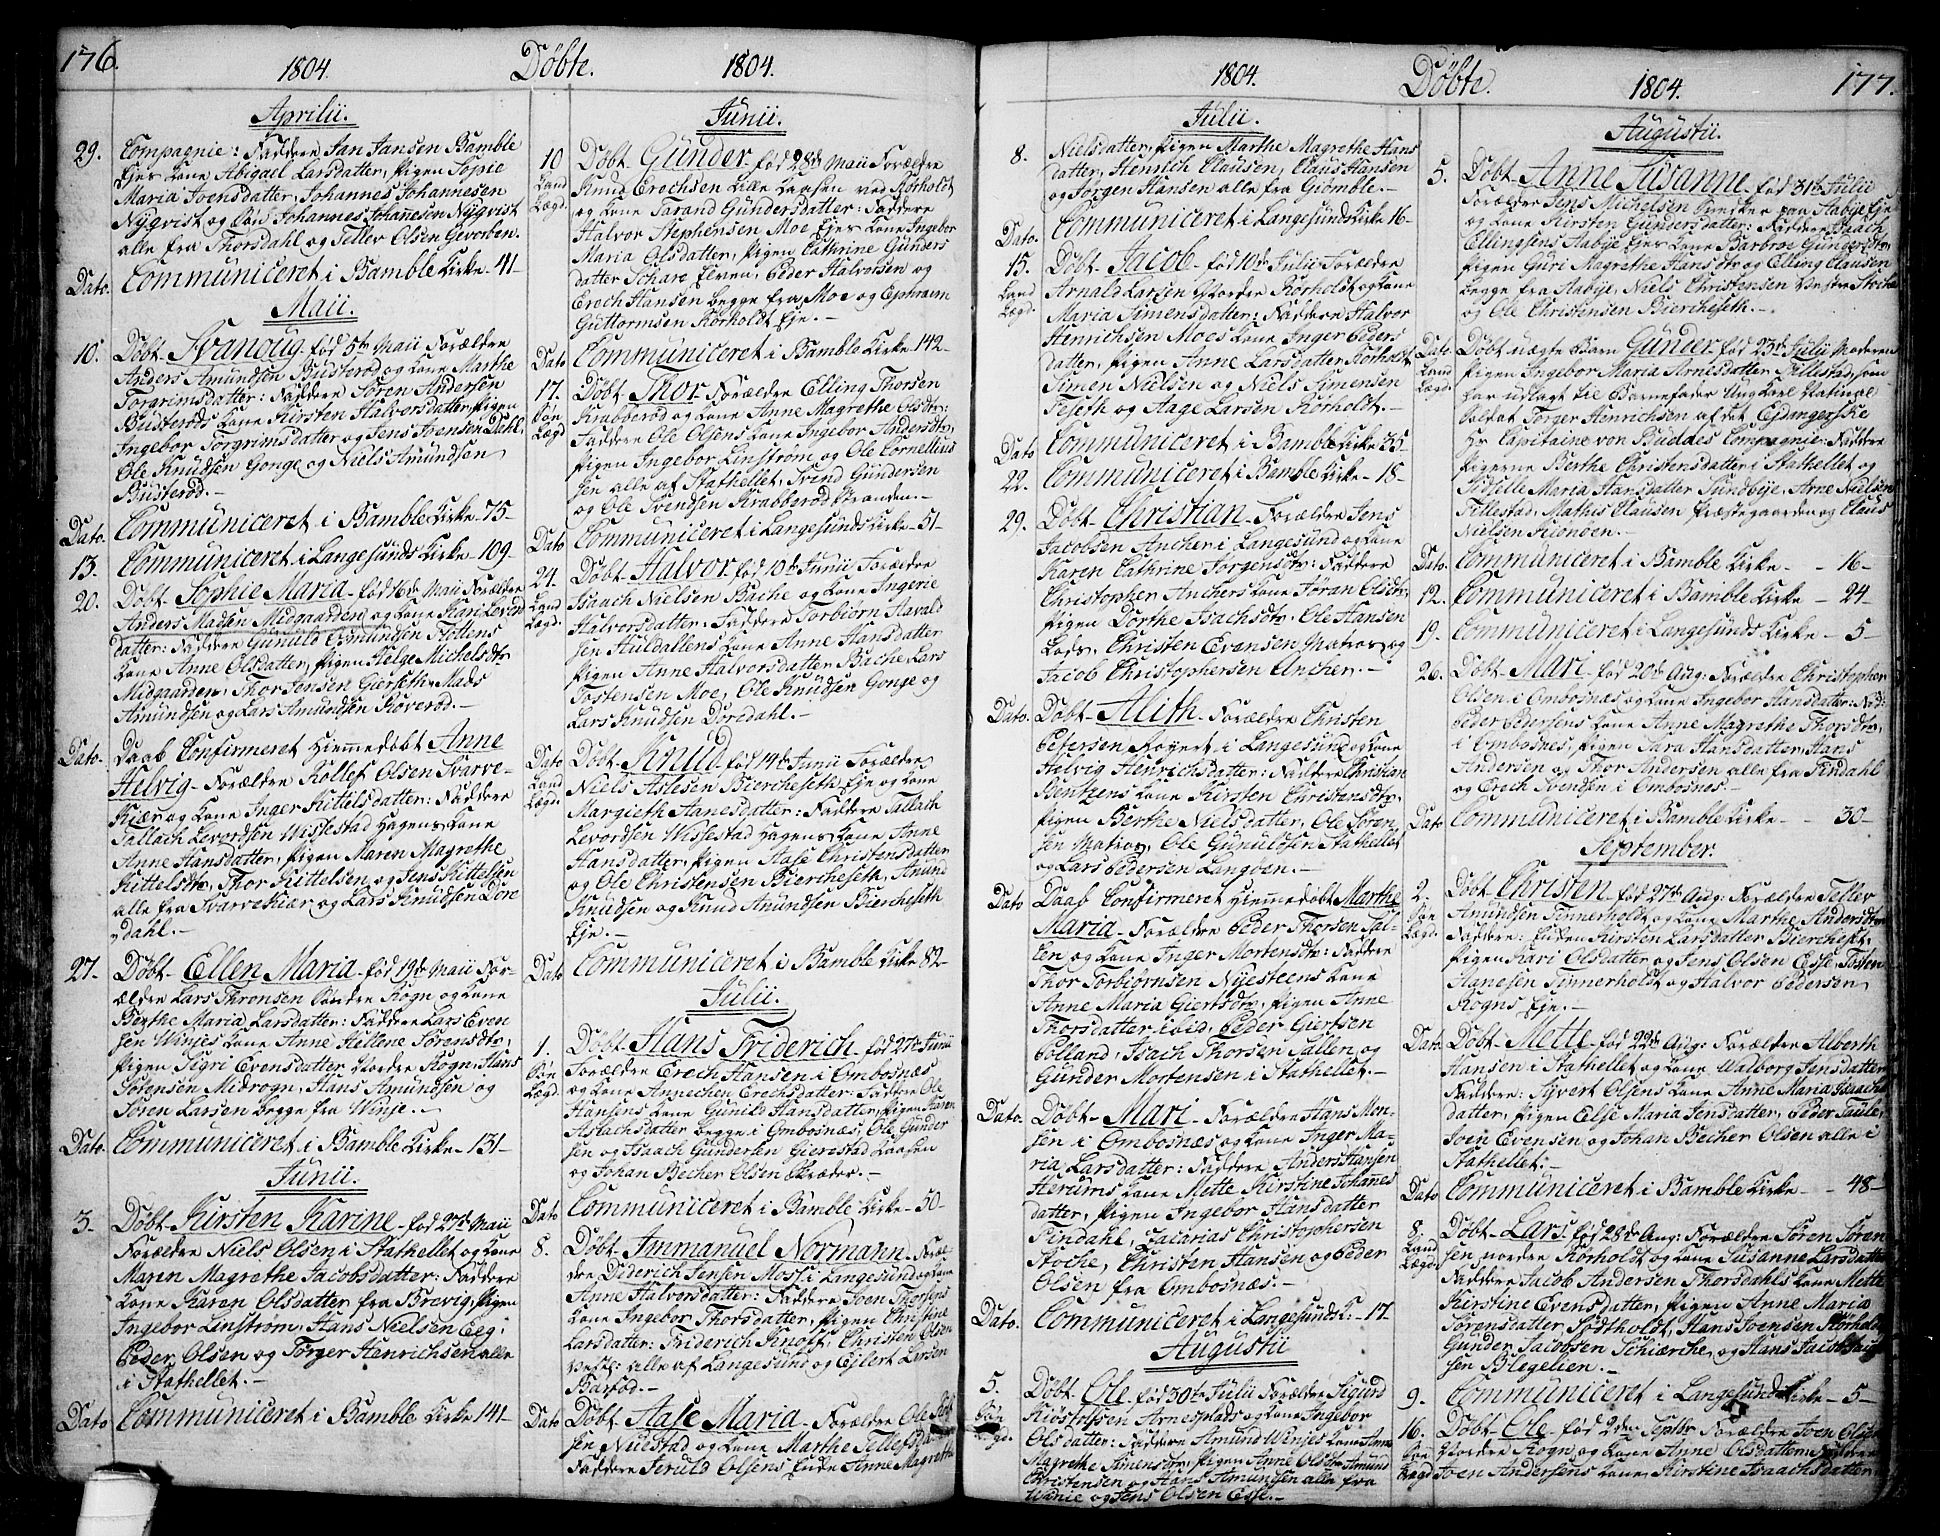 176.
1804. Döbte. 1804.
Aprilii.
29. Compagnie: Faddere Jan Jansen Bamble
Ejes Kone Abigael Larsdatter, pigen Sopie
Maria Joensdatter, Johannes Johannesen
Nÿqvist og Søn Johannes Johanesen Nÿqvist
alle fra Thorsdahl og Tellev Olsen Gevorben.
Dato. Communiceret i Bamble Kirke - 41 -
Maii.
10. Döbt Svanoug - fød 5te Maii Forældre
Anders Amundsen Büsteröd og Kone Marthe
Torgrimsdatter: Faddere Sören Andersen
Büsteröds Kone Kirsten Halvorsdatter, pigen
Ingebor Torgrimsdatter og Jens Joensen Dahl,
Ole Knüdsen Gonge og Niels Amundsen
Büsteröd. -
Dato. Communiceret i Bamble Kirke - 75 -
13. Communiceret i Langesünds Kirke - 109 -
20. Döbt Sophie Maria - fød 16de Maii Forældre
Anders Madsen Midgaarden og Kone Kari Levords
datter: Faddere Gunuld Edmundsen Flottens
Kone Anne Olsdatter, pigen Helge Michelsdtr
Midgaarden, Thor Jensen Gierseth, Mads
Amundsen og Lars Amundsen Roveröd. -
Dato. Daab Confirmeret hiemmedöbt Anne
Helvig - Forældre Rollef Olsen Svarve-
Kiær og Kone Inger Kittelsdatter: Faddere
Tallach Levordsen Wissestad Hagens Kone
Anne Hansdatter, pigen Maren Magrethe
Kittelsdtr, Thor Kittelsen og Jens Kittelsen
alle fra Svarvekiær og Lars Knüdsen Dore
dahl. -
27. Döbt - Ellen Maria - fød 19de Maii For-
ældre Lars Thronsen Söndre Rogn og Kone
Berthe Maria Larsdatter: Faddere Lars Even
sen Winjes Kone Anne Hellene Sörensdtr,
pigen Sigri Evensdatter Nordre Rogn, Hans
Sörensen Midrogn, Hans Amundsen og
Soren Larsen begge fra Winje. -
Dato. Communiceret i Bamble Kirke - 131 -
Junii.
3. Döbt - Kirsten Karine - fød 27de Maii
Forældre Niels Olsen i Stathellet og Kone
Maren Magrethe Jacobsdatter: Faddere
Kone Karen Olsdatter fra Brevig, pigen
Ingebor Linström, Hans Nielsen Eeg
Peder Olsen og Torger Henrichsen alle
i Stathellet. -
Dato Communiceret i Bamble Kirke 141 -
Junii.
10 Land Lægd. Döbt Gunder - fød 28de Maii Forældre
Knud Erechsen Lille Laasen ved Rorholdt
og Kone Tarand Gundersdatter: Faddere
Halvor Stephensen Moe Ejes Kone Ingebor
Maria Olsdatter, pigen Cathrine Gunders
datter Schare Elven, Peder Halvorsen og
Erech Hansen begge fra Moe og Ephraim
Guttormsen Rorholdt Eje. -
Dato Communiceret i Bamble Kirke - 142 -
17. Søn Lægd Döbt Thor. Forældre Elling Thorsen
Krabberöd og Kone Anne Magrethe Olsdtr:
Faddere Ole Olsens Kone Ingebor Andersdtr,
pigen Ingebor Linström og Ole Cornelius
sen alle af Stathellet, Svind Gundersen
og Ole Svendsen Krabberöd Stranden. -
Dato Communiceret i Langesunds Kirke - 51 -
24. Land Lægd. Döbt Halvor fød 10de Junii Forældre
Isaach Nielsen Bache og Kone Ingerie
Halvorsdatter: Faddere Torbiörn Havald
sen Huldallens Kone Anne Hansdatter
pigen Anne Halvorsdatter Bache, Lars
Tostensen Moe, Ole Knudsen Gonge og
Lars Knudsen Doredahl. -
Dato Land Lægd. Döbt - Knud - fød 14de Junii Forældre
Niels Aslesen Biercheseth Eje og Kone
Margieth Hanesdatter: Faddere Tallach
Levordsen Wissestad Hagens Kone Anne
Hansdatter, pigen Aase Christensdatter
og Ole Christensen Biercheseth, Amund
Knudsen og Knud Amundsen Biercheseth
Eje. -
Dato Communiceret i Bamble Kirke 82 -
Julii.
1. Søn Lægd. Döbt Hans Friderich - fød 27de Junii
Forældre Erech Hansen i Ombosnæs
og Kone Annechen Erechsdatter: Faddere Ole
Hansens Kone Gunild Hansdatter, pigen Karen
Aslachsdatter begge i Ombosnæs, Ole Gunder
sen og Isaach Gundersen Gierestad Laasen
og Johan Becher Olsen Skræder. -
Dato Communiceret i Bamble Kirke - 50 -
8. Döbt - Immanuel Normann - Foræl-
dre Diderich Jensen Most i Langesund og Kone
Anne Halvorsdatter: Faddere Joen Thorsens
Kone Ingebor Thorsdatter, pigen Christine
Larsdatter: Friderich Knoff, Christen Olsen
Vest: alle af Langesund og Ejlert Larsen
Bassöd. -
Dato Döbt - Aase Maria - Forældre Ole
sen Nuestad og Kone Marthe Tellefsdtr
Faddere Jeruld Olsens Enke Anne Magrethe
1804. Döbte. 1804. 177.
Julii.
8. Nielsdatter, pigen Marthe Magrethe Hans
datter, Henrich Clausen, Claus Hansen
og Jörgen Hansen alle fra Giömle. -
Dato. Communiceret i Langesunds Kirke 16 -
15. Land Lægd. Döbt - Jacob - fød 10de Julii Forældre
Arnald Larsen Nordre Rorholdt og Kone
Maria Simensdatter: Faddere Halvor
Henrichsen Moes Kone Inger Peders
datter, pigen Anne Larsdatter Rorholdt,
Simen Nielsen og Niels Simensen
Teseth og Aage Larsen Rorholdt. -
Dato Communiceret i Bamble Kirke 35 -
22. Communiceret i Bamble Kirke - 18 -
29. Döbt - Christian - Forældre Jens
Jacobsen Ancher i Langesund og Kone
Karen Cathrine Jorgensdtr: Faddere
Christopher Anchers Kone Jöran Olsdtr,
pigen Dorthe Isachsdtr, Ole Hansen
Lods, Christen Evensen Matros og
Jacob Christophersen Ancher. -
Dato. Döbt - Alith - Forældre Christen
Petersen Röyert i Langesund og Kone
Helvig Henrichsdatter: Faddere Christian
Bentzens Kone Kirsten Christensdtr,
pigen Berthe Nielsdatter, Ole Sören
sen Matros, Ole Gunuldsen Stathellet
og Lars Pedersen Langöen. -
Dato Daab Confirmeret hiemmedöbt Marthe
Maria - Forældre Peder Thorsen Sal-
len og Kone Inger Mortensdtr: Faddere
Thor Torbiörnsen Nyesteens Kone
Anne Maria Giertsdtr, pigen Anne
Thorsdatter ibid, Peder Giertsen
Polland, Isach Thorsen Sallen og
Gunder Mortensen i Stathellet. -
Dato. Döbt - Mari - Forældre Hans Mon-
sen i Ombosnæs og Kone Inger Ma-
ria Larsdatter: Faddere Anders Hansen
Herums Kone Mette Kirstine Johanes
datter, pigen Ingebor Hansdatter
Findahl, Sacarias Christophersen
Stoche, Christen Hansen og Peder
Olsen fra Ombosnæs. -
Dato. Communiceret i Langesunds K: - 17 -
Augustii
5. Søn Lægd. Döbt - Ole - fød 30te Julii Forældre Sigurd
Kiöstolfsen Arnesplads og Kone Ingebor
Olsdatter: Faddere Amund Winjes Kone Anne
Magrethe Simensdtr, pigen Anne Olsdtr, Amund
Christensen og Hans Amundsen alle fra
Winie og Jens Olsen Esse. -
Augustii.
5. Döbt - Anne Susanne - fød 31te Julii
Forældre Jens Michelsen Svenske paa Aabÿe Eje
og Kone Kirsten Gundersdatter: Faddere Isaach
Ellingsens Aabÿe Ejes Kone Barbroe Gundersdtr,
pigen Guri Magrethe Hansdtr og Elling Clausen
begge fra Aabÿe, Niels Christensen Vestre
og Ole Christensen Biercheseth. -
Dato. Land Lægd. Döbt uægte Barn Gunder fød 23de Julii Moderen
pigen Ingebor Maria Arnesdatter Fillestad, som
har udlagt til Barnefader Ungkarl National
Soldat Torger Henrichsen af det Eydangerske
Hr Capitaine von Buddes Compagnie: Faddere
pigerne Berthe Christensdatter i Stathellet og
Sidselle Maria Hansdatter Sundbÿe, Arne Nielsen
Fillestad, Mathis Clausen Præstegaarden og Claus
Nielsen Feionben.
Dato. Communiceret i Bamble Kirke - - 16 -
12. Communiceret i Bamble Kirke - 24 -
19. Communiceret i Langesunds Kirke - 5 -
26. Döbt - Mari - fød 20de Aug: Forældre Christopher
Olsen i Ombosnæs og Kone Ingebor Hansdatter:
Peder Pedersens Kone Anne Magrethe Thorsdtr
i Ombosnes, pigen Sara Hansdatter, Hans
Andersen og Thor Andersen alle fra Findahl
og Erech Svendsen i Ombosnes. -
Dato Communiceret i Bamble Kirke - - 30 -
September.
2. Søn Lægd. Döbt - Christen - fød 27de Aug: Forældre Tellev
Amundsen Tinnerholdt og Kone Marthe Andersdtr
Faddere: Enken Kirsten Larsdatter Bierchest,
pigen Kari Olsdatter og Jens Olsen Esse, Tosten
Hanesen Tinnerholdt og Halvor Pedersen
Rogns Eje. -
Dato. Döbt - Mette - fød 22de Aug: Forældre Alberth
Hansen i Stathellet og Kone Walborg Jensdatter
Faddere: Syvert Olsens Kone Anne Maria Isaachs
datter, pigen Else Maria Jensdatter, Peder Taule,
Joen Evensen og Johan Becher Olsen alle i
Stathellet. -
Dato Communiceret i Bamble Kirke - - 48 -
8. Land Lægd. Döbt - Lars. fød 28de Aug: Forældre Sören Sören
sen nordre Rorholdt og Kone Susanne Larsdatter
Faddere Jacob Andersen Thorsdahls Kone Mette
Kirstine Evensdatter, pigen Anne Maria
Sörensdatter Födtholdt, Hans Joensen Rorholdt
Gunder Jacobsen Schierche, og Hans Jacob
sen Blegelien. -
9. Communiceret i Langesunds Kirke - 5 -
16. Søn Lægd Döbt - Ole - fød 2den Septbr Forældre Joen Olsen
Nordre Rogn og Kone Anne Olsdatter: Faddere
Joen Andersens Kone Kirstine Isaachsdatter